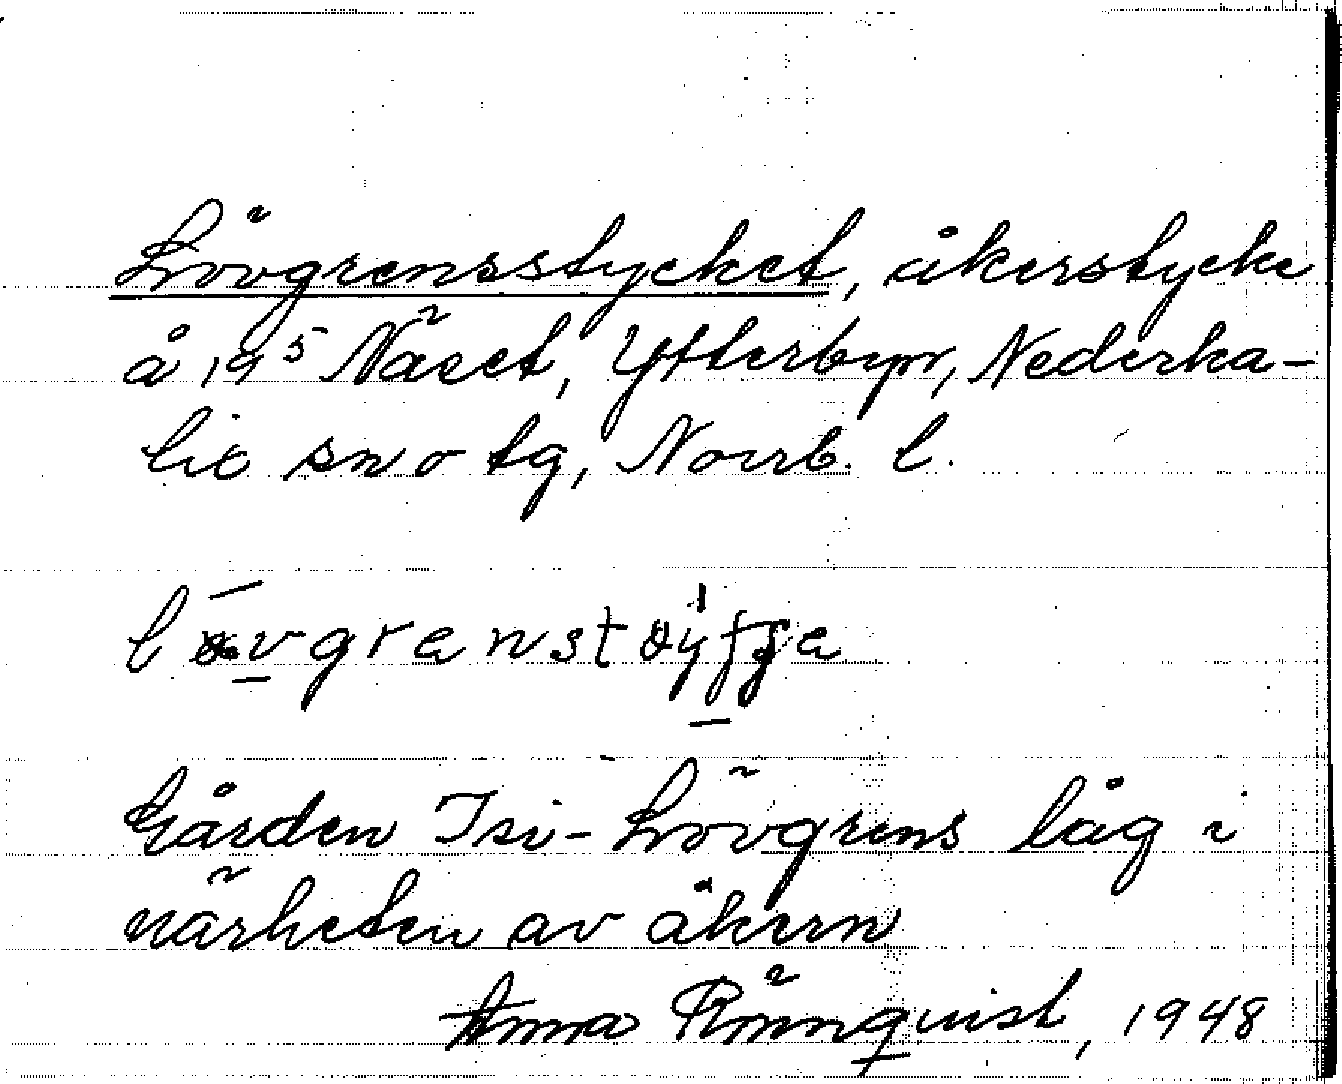 Lövgrensstycket, åkerstycke
å 19⁵ Näset, Ytterbyn, Nederka-
lix sn o tg, Norrb. l.
Gården Isi-Lövgrens låg i
närheten av åkern
Anna Rönnquist, 1948